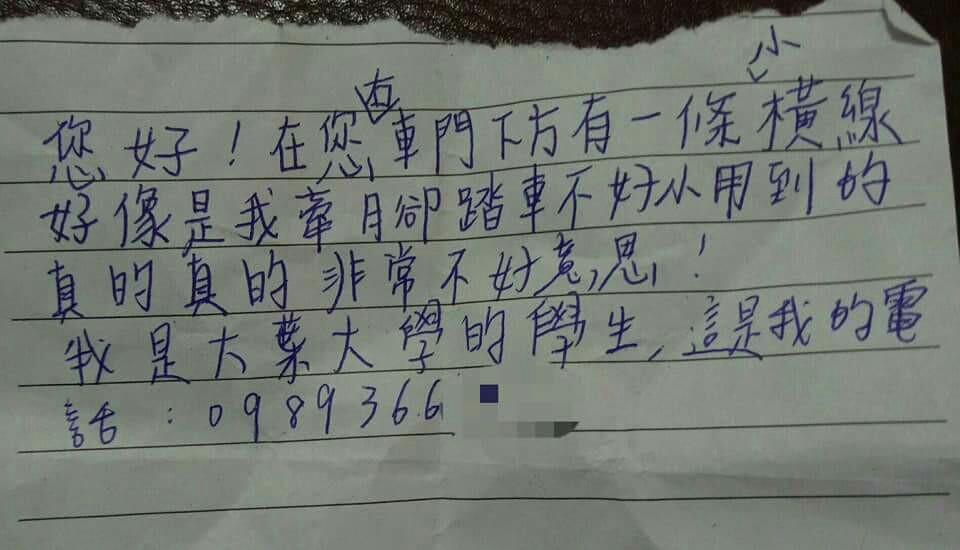 您好！在您右車門下方有一條小橫線
好像是我牽腳踏車不好小用到的
真的真的非常不好意思！
我是大葉大學的學生，這是我的電
話：0989366